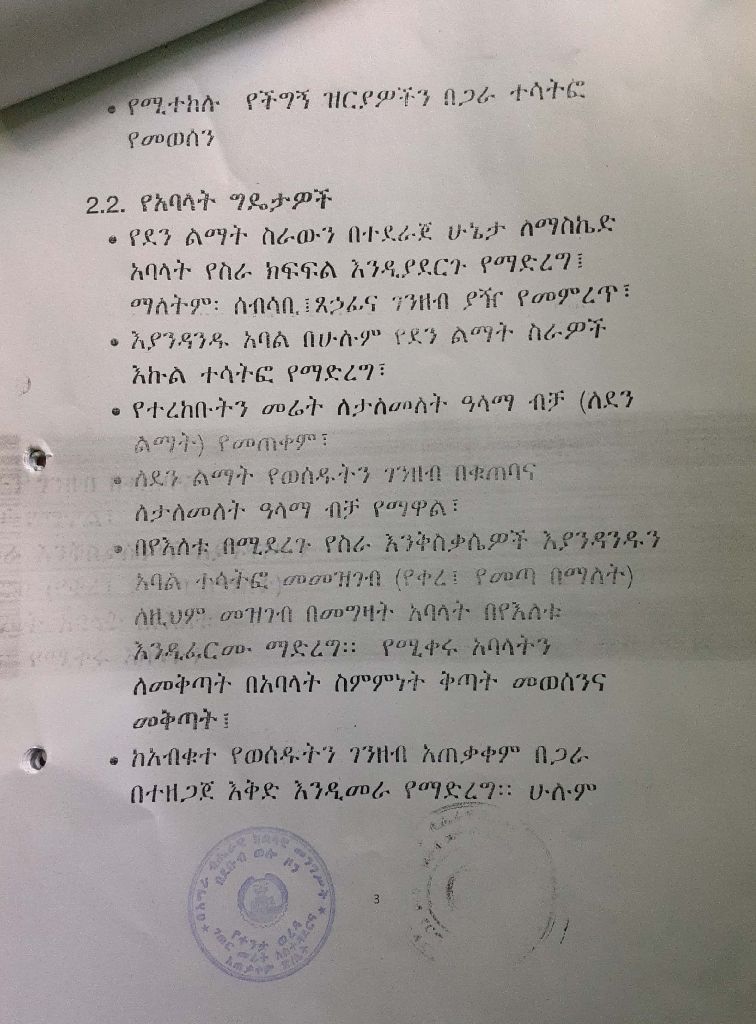 • የሚተከሉ የችግኝ ዝርያዎችን በጋራ ተሳትፎ
የመወሰን
2.2. የአባላት ግዴታዎች
• የደን ልማት ስራውን በተደራጀ ሁኔታ ለማስኬድ
አባላት የስራ ክፍፍል እንዲያደርጉ የማድረግ፤
ማለትም፡ ሰብሳቢ፤ጸኃፊና ገንዘብ ያዥ የመምረጥ፣
• እያንዳንዱ አባል በሁሉም የደን ልማት ስራዎች
እኩል ተሳትፎ የማድረግ፣
• የተረከቡትን መሬት ለታለመለት ዓላማ ብቻ (ለደን
ልማት) የመጠቀም፤
• ለደን ልማት የወሰዱትን ገንዘብ በቁጠባና
ለታለመለት ዓላማ ብቻ የማዋል፤
• በየእለቱ በሚደረጉ የስራ እንቅስቃሴዎች እያንዳንዱን
አባል ተሳትፎ መመዝገብ (የቀረ፤ የመጣ በማለት)
ለዚህም መዝገብ በመግዛት አባላት በየእለቱ
እንዲፈርሙ ማድረግ። የሚቀሩ አባላትን
ለመቅጣት በአባላት ስምምነት ቅጣት መወሰንና
መቅጣት፤
• ከአብቁተ የወሰዱትን ገንዘብ አጠቃቀም በጋራ
በተዘጋጀ እቅድ እንዲመራ የማድረግ። ሁሉም
በደቡብ ወሎ ዞን
የተንታ ወረዳ
3